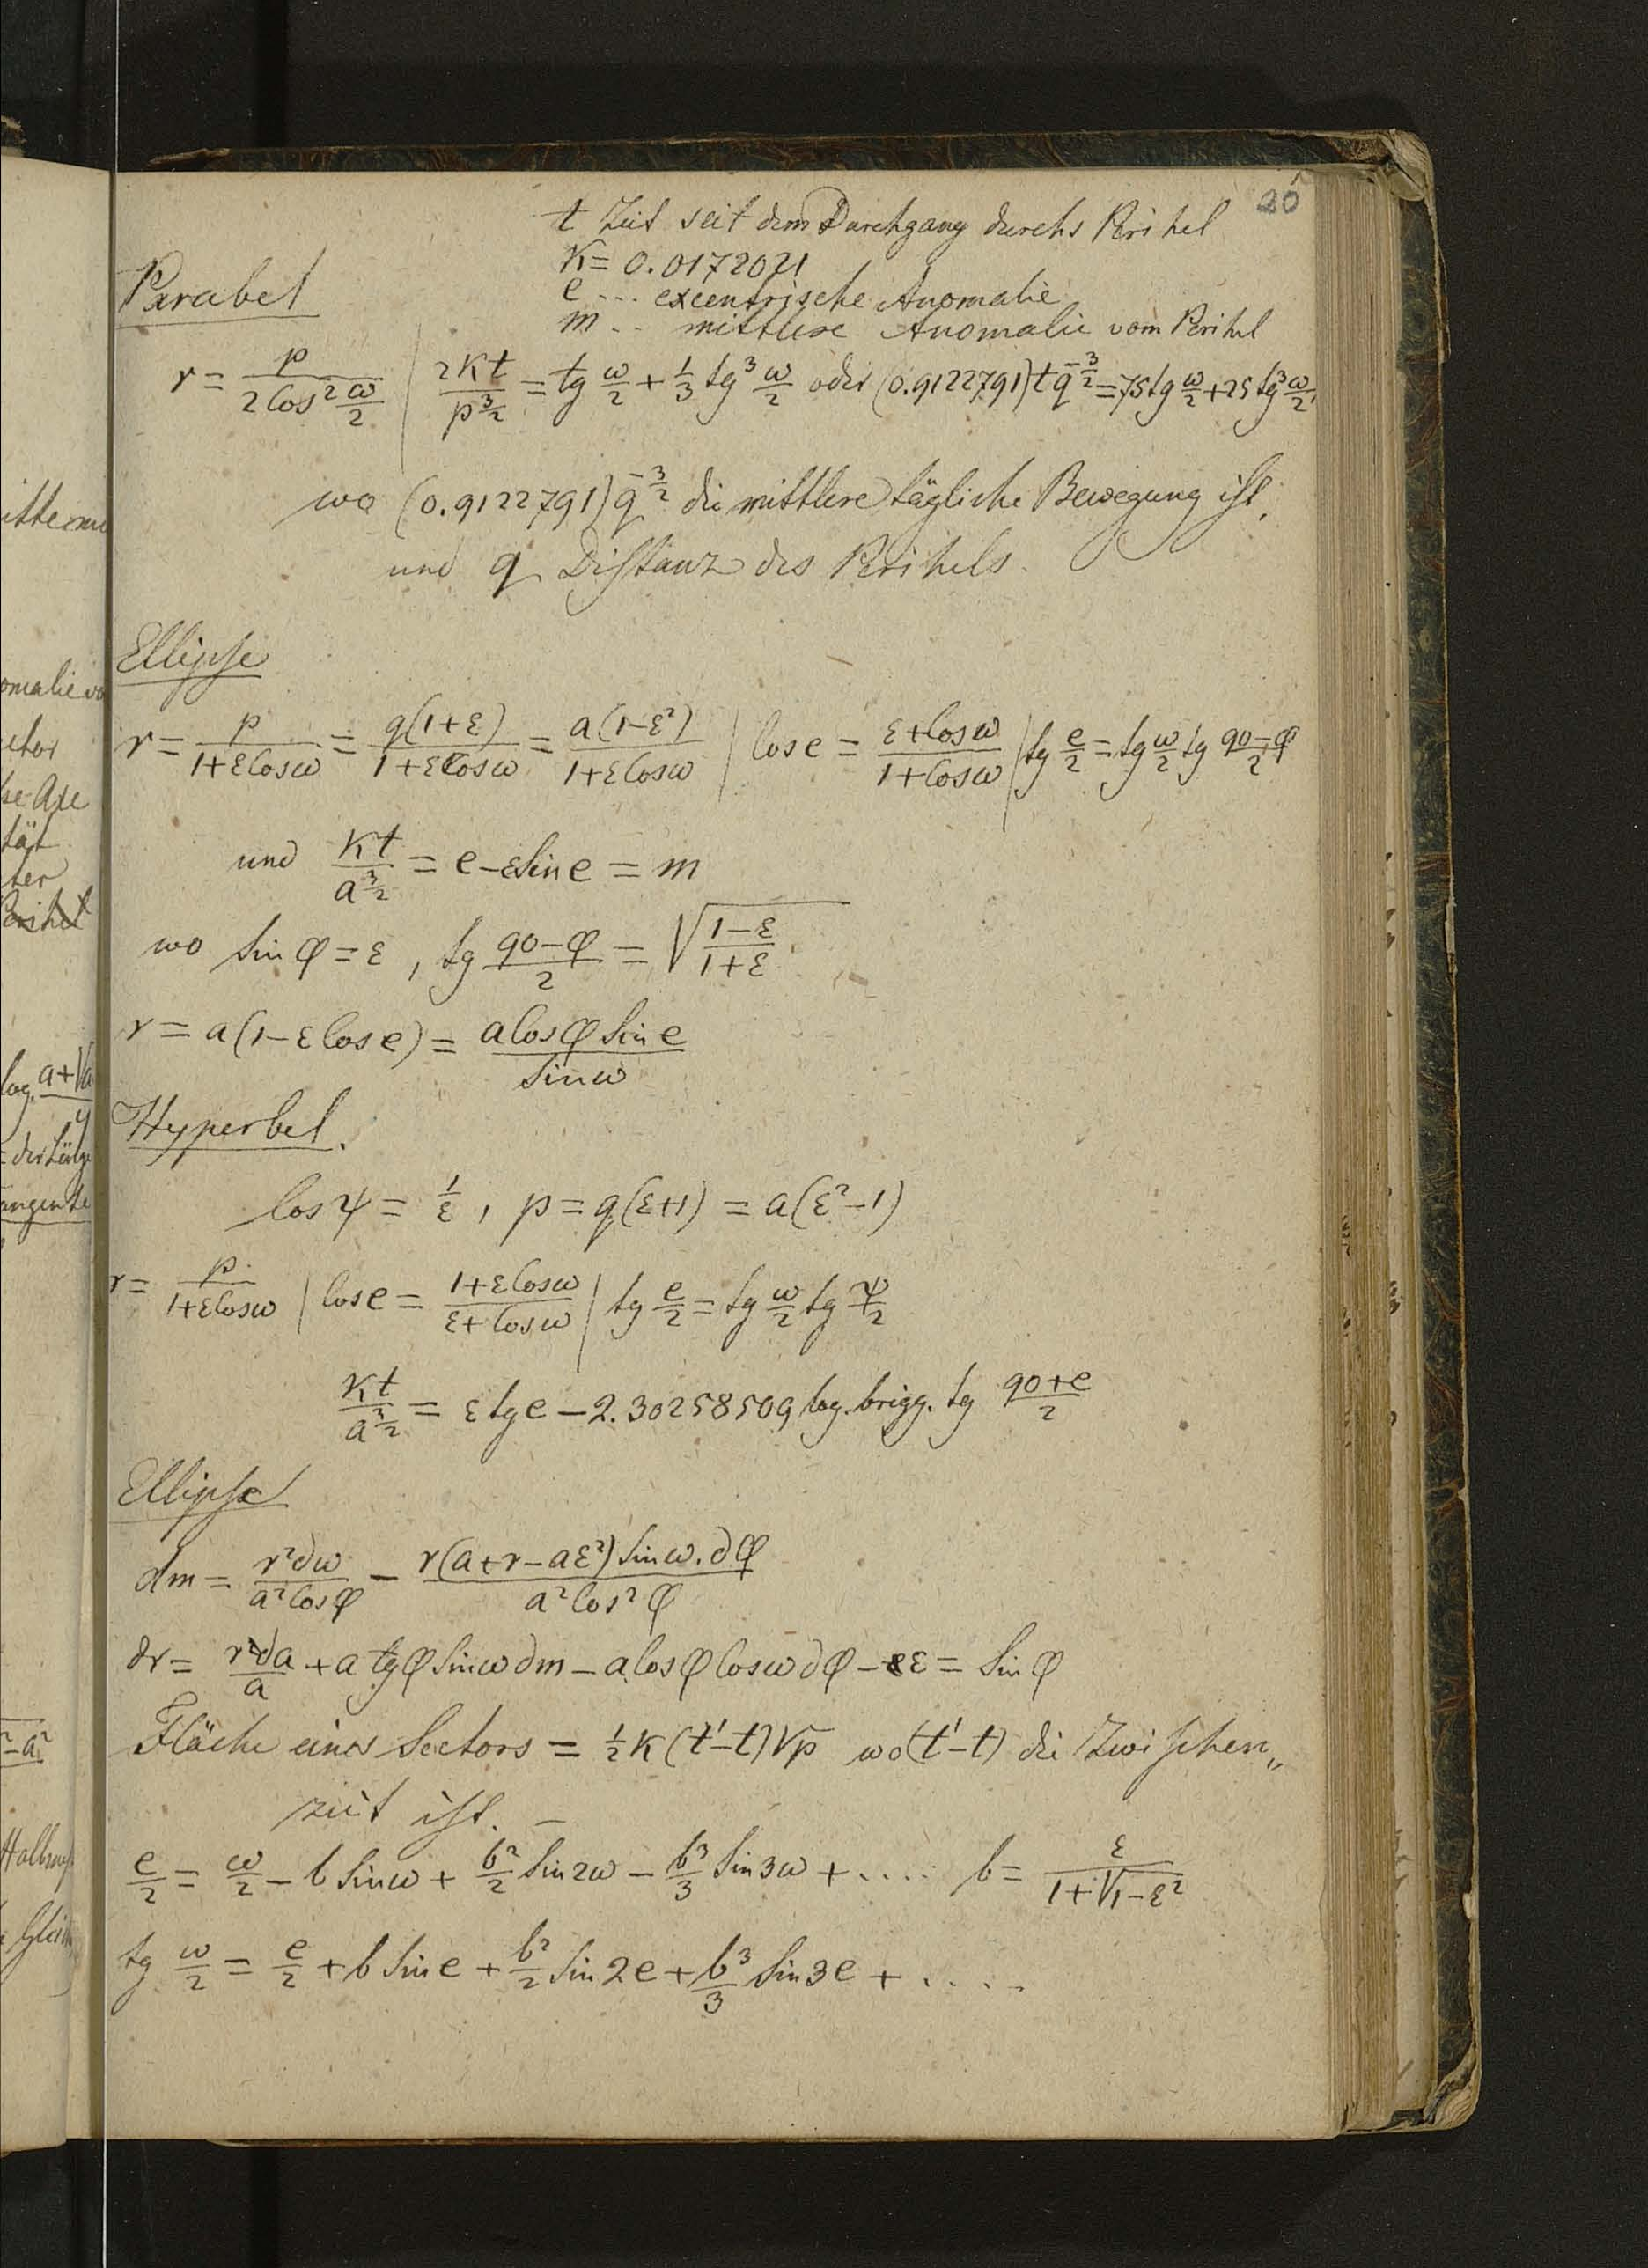 20
t Zeit seit dem Durchgang durchs Perihel
K = 0.0172021
Parabel
e ... excentrische Anomalie
m .. mittlere Anomalie vom Perihel
r = p/(2 Cos² ω/2) | 2Kt/p^(3/2) = tg ω/2 + 1/3 tg³ ω/2 oder (0.9122791) t q^(-3/2) = 75 tg ω/2 + 25 tg³ ω/2,
wo (0.9122791) q^(-3/2) die mittlere tägliche Bewegung ist,
und q Distanz des Perihels.
Ellipse
r = p/(1+ε Cos ω) = q(1+ε)/(1+ε Cos ω) = a(1-ε²)/(1+ε Cos ω) | Cos e = (ε+Cos ω)/(1+Cos ω) | tg e/2 = tg ω/2 tg (90-φ)/2
und Kt/a^(3/2) = e - ε Sin e = m
wo Sin φ = ε, tg (90-φ)/2 = √((1-ε)/(1+ε))
r = a(1-ε Cos e) = a Cos φ Sin e / Sin ω
Hyperbel.
Cos ψ = 1/ε, p = q(ε+1) = a(ε²-1)
r = p/(1+ε Cos ω) | Cos e = (1+ε Cos ω)/(ε+Cos ω) | tg e/2 = tg ω/2 tg ψ/2
Kt/a^(3/2) = ε tg e - 2.30258509 log. brigg. tg (90+e)/2
Ellipse
dm = r²∂ω/(a² Cos φ) - r(a+r-aε²) Sin ω.∂φ/(a² Cos² φ)
∂r = r∂a/a + a tg φ Sin ω ∂m - a Cos φ Cos ω ∂φ - ε = Sin φ
Fläche eines Sectors = 1/2 K (t'-t) √p wo (t'-t) die Zwischen„
zeit ist. -
e/2 = ω/2 - b Sin ω + b²/2 Sin 2ω - b³/3 Sin 3ω + .... b = ε/(1+√(1-ε²))
tg ω/2 = e/2 + b Sin e + b²/2 Sin 2e + b³/3 Sin 3e + ....